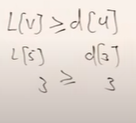 L[v] ≥ d[u]
L[5] d[3]
3 ≥ 3